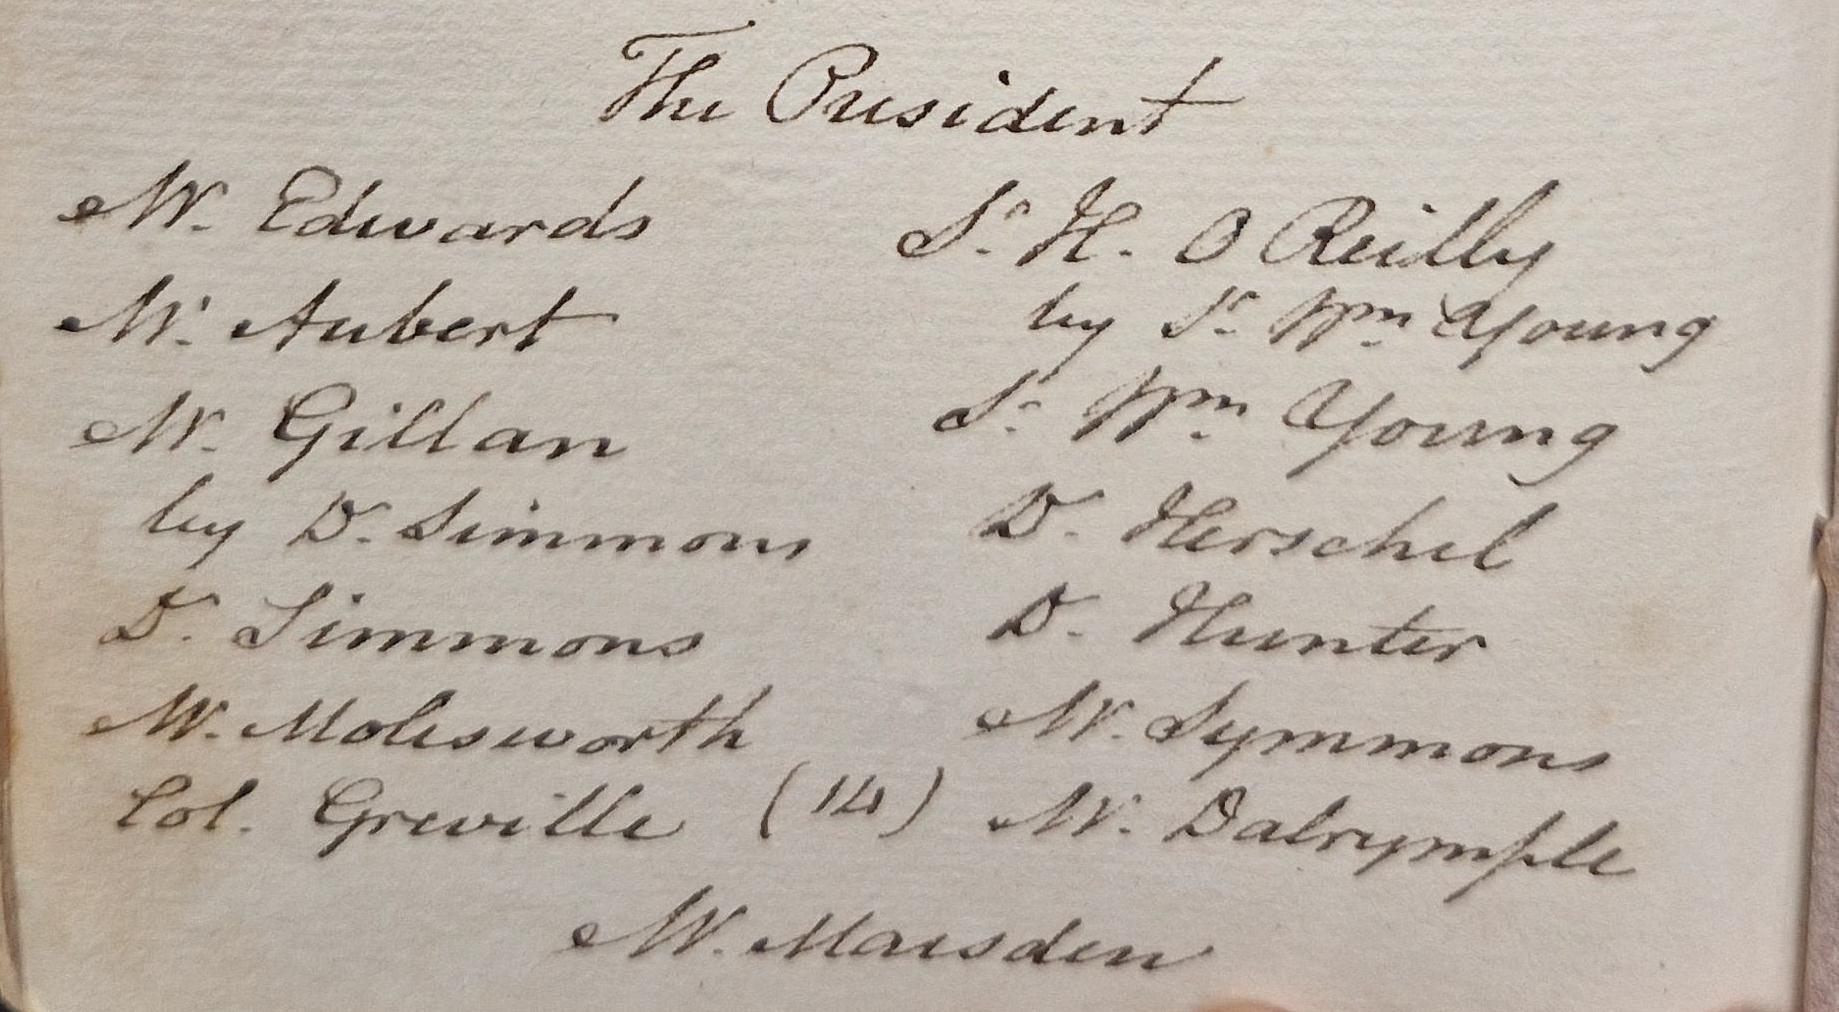 The President
Mr. Edwards
Mr. Aubert
Mr. Gillan
by Dr. Simmons
Dr. Simmons
Mr. Molesworth
Col. Greville (14)
Sr. H. O Reilly
by Sr. Wm. Young
Sr. Wm. Young
Dr. Herschel
Dr. Hunter
Mr. Symmons
Mr. Dalrymple
Mr. Marsden